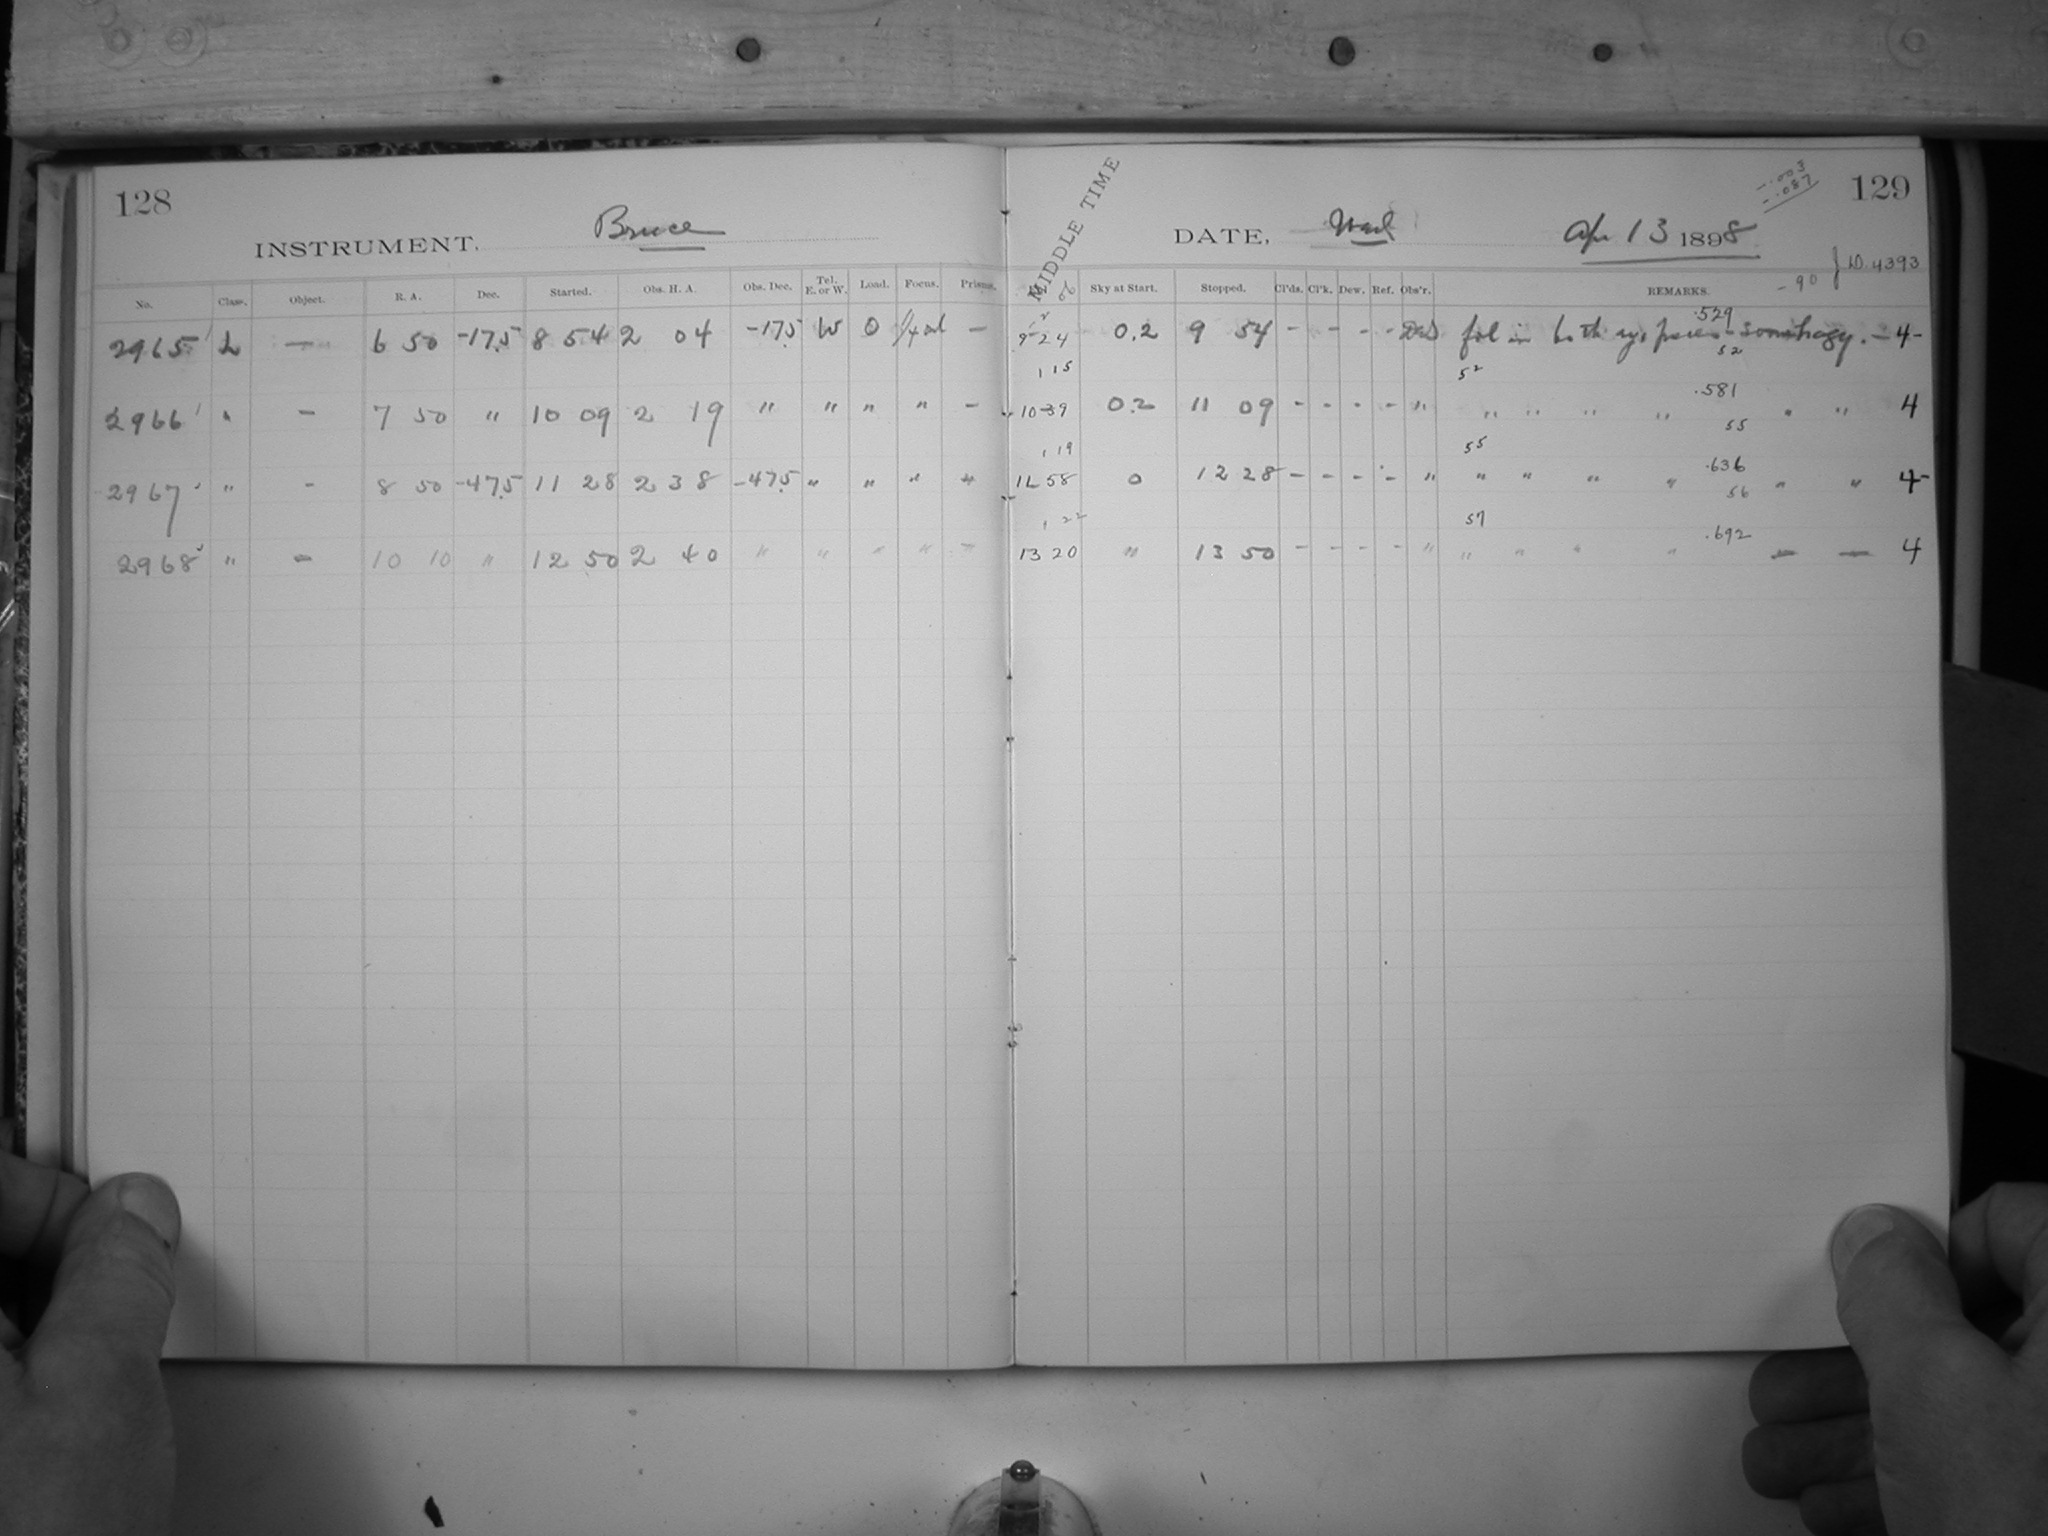 128
INSTRUMENT, Bruce
No. Class. Object. R. A. Dec. Started. Obs. H. A. Obs. Dec. Tel. E. or W. Load. Focus. Prisms.
2965 L — 6 50 -17.5 8 54 2 04 -17.5 W 0 —
2966 " - 7 50 " 10 09 2 19 " " " " -
2967 " - 8 50 -47.5 11 28 2 38 -47.5 " " " "
2968 " - 10 10 " 12 50 2 40 " " " " "
MIDDLE TIME
129
-.003
-.087
DATE, Wed Apr 13 1898
J.D. 4393
-90
Sky at Start. Stopped. Cl'ds. Cl'k. Dew. Ref. Obs'r. REMARKS.
.529
9 24 0.2 9 54 - - - - fol in both 4-
52
1 15 52
.581
10 39 0.2 11 09 - - - - " " " " " " " 4
55
1 19 55
.636
11 58 0 12 28 - - - - " " " " " " " 4-
56
1 22 57
.692
13 20 " 13 50 - - - - " " " " " — — 4